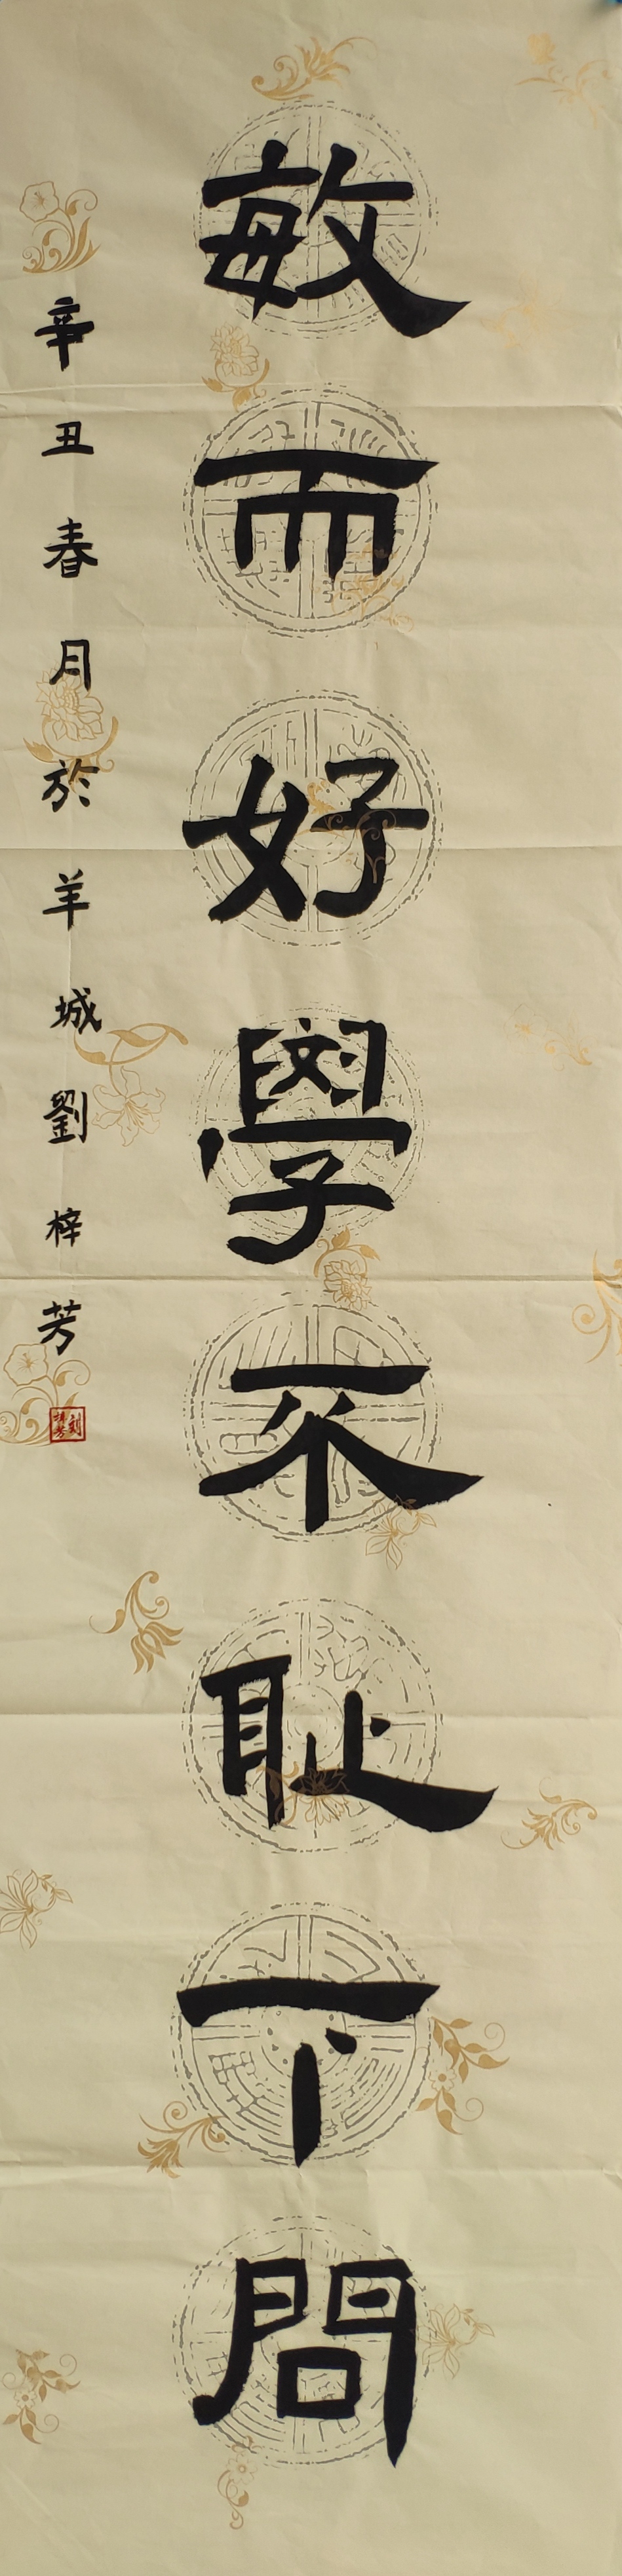 敏而好學不恥下問
辛丑春月於羊城劉梓芳
刘梓芳